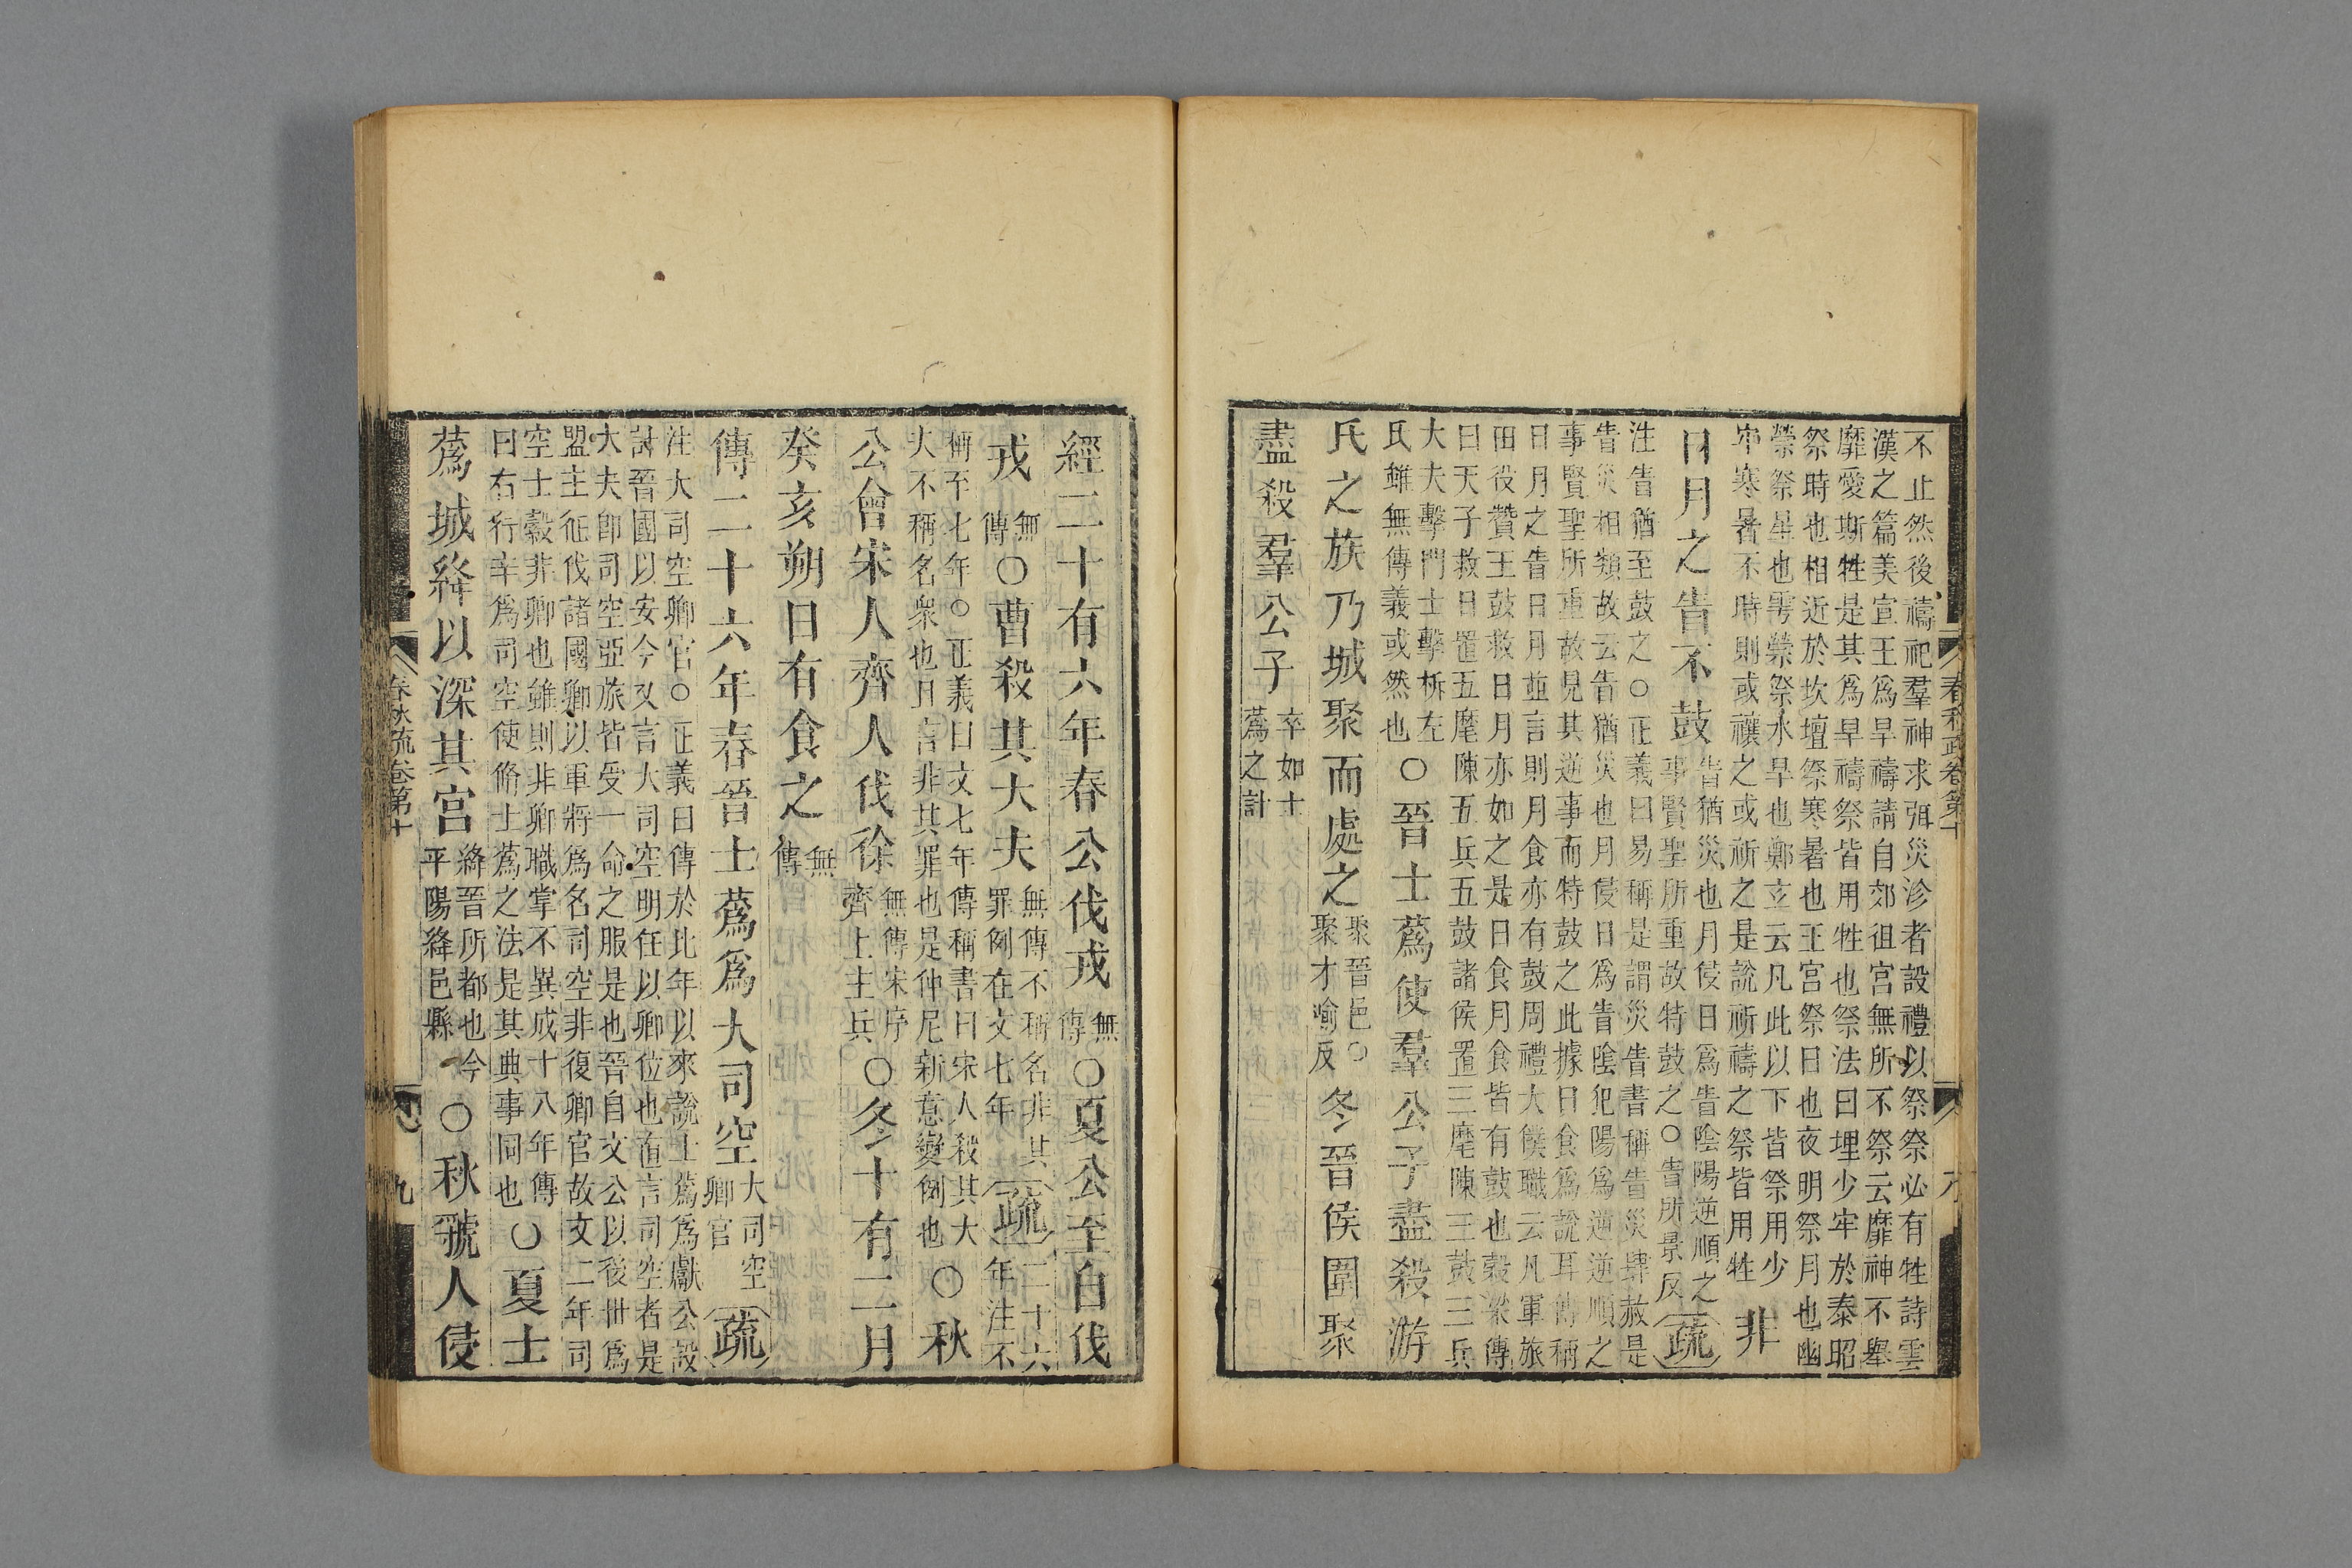 不止然後禱祀羣神求弭災沴者設禮以祭祭必有牲詩雲
漢之篇美宣王爲旱禱請自郊徂宮無所不祭云靡神不舉
靡愛斯牲是其爲旱禱祭皆用牲也祭法曰埋少牢於泰昭
祭時也相近於坎壇祭寒暑也王宮祭日也夜明祭月也幽
禜祭星也雩禜祭水旱也鄭立云凡此以下皆祭用少
牢寒暑不時則或禳之或祈之是說祈禱之祭皆用牲
非
日月之眚不鼓
眚猶災也月侵日爲眚陰陽逆順之
事賢聖所重故特鼓之○眚所景反
疏
注眚猶至鼓之○正義曰易稱是謂災眚書稱眚災肆赦是
眚災相類故云眚猶災也月侵日爲眚陰犯陽爲逆逆順之
事賢聖所重故見其逆事而特鼓之此據日食爲說耳傳稱
日月之眚日月並言則月食亦有鼓周禮大僕職云凡軍旅
田役贊王鼓救日月亦如之是日食月食皆有鼓也穀梁傳
曰天子救日置五麾陳五兵五鼓諸侯置三麾陳三鼓三兵
大夫擊門士擊柝左
氏雖無傳義或然也
○晉士蔿使羣公子盡殺游
氏之族乃城聚而處之
聚晉邑○
聚才喻反
冬晉侯圍聚
盡殺羣公子
卒如士
蔿之計
春秋疏卷第十
經二十有六年春公伐戎
無
傳
○夏公至自伐
戎
無
傳
○曹殺其大夫
無傳不稱名非其
罪例在文七年
疏
二十六
年注不
稱至七年○正義曰文七年傳稱書曰宋人殺其大
夫不稱名衆也且言非其罪也是仲尼新意變例也
○秋
公會宋人齊人伐徐
無傳宋序
齊上主兵
○冬十有二月
癸亥朔日有食之
無
傳
傳二十六年春晉士蔿爲大司空
大司空
卿官
疏
注大司空卿官○正義曰傳於比年以來說士蔿爲獻公設
計晉國以安今又言大司空明任以卿位也直言司空者是
大夫卽司空亞旅皆受一命之服是也晉自文公以後世爲
盟主征伐諸國卿以軍將爲名司空非復卿官故文二年司
空士縠非卿也雖則非卿職掌不異成十八年傳
曰右行辛爲司空使脩士蔿之法是其典事同也
○夏士
蔿城絳以深其宮
絳晉所都也今
平陽絳邑縣
○秋虢人侵
春秋疏卷第十
九